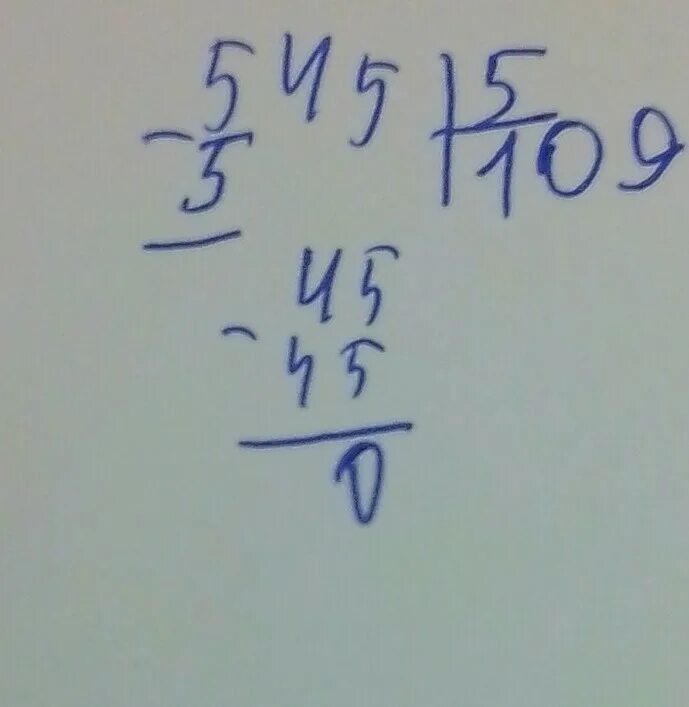 545 5
-5 109
45
-45
0